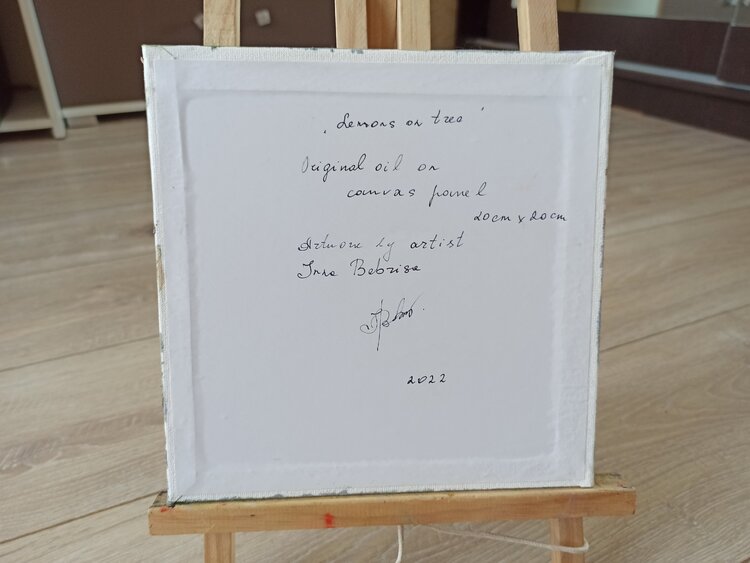 „Lemons on tree"
Original oil on
canvas panel
20cm x 20cm
Artwork by artist
Inna Bebrisa
2022